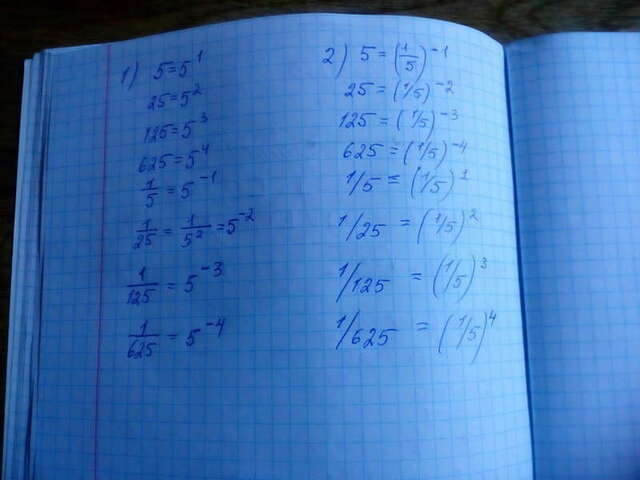 1) 5=5^1
25=5^2
125=5^3
625=5^4
1/5=5^-1
1/25=1/5^2=5^-2
1/125=5^-3
1/625=5^-4
2) 5=(1/5)^-1
25=(1/5)^-2
125=(1/5)^-3
625=(1/5)^-4
1/5=(1/5)^1
1/25=(1/5)^2
1/125=(1/5)^3
1/625=(1/5)^4